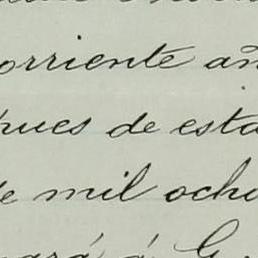 orriente añ
pues de esta
de mil ocho
á G